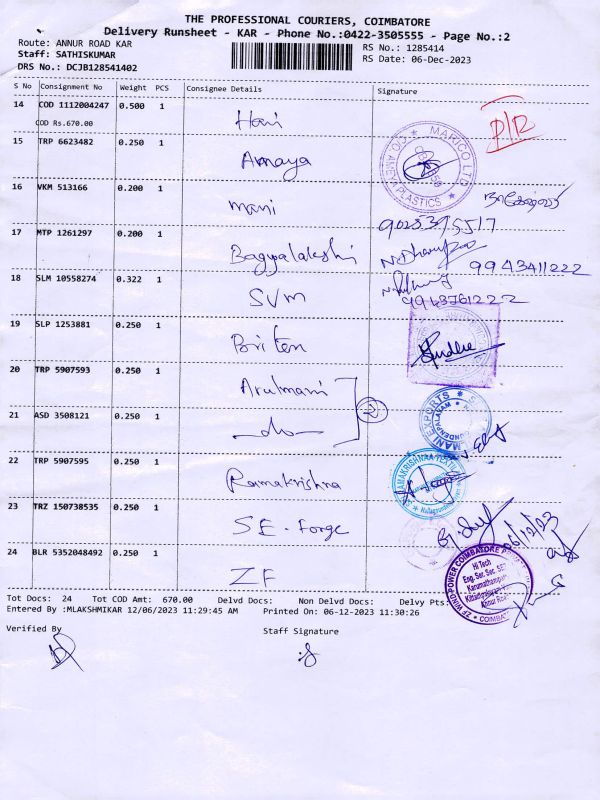 THE PROFESSIONAL COURIERS, COIMBATORE
Delivery Runsheet - KAR - Phone No.:0422-3505555 - Page No.:2
Route: ANNUR ROAD KAR
RS No.: 1285414
Staff: SATHISKUMAR
RS Date: 06-Dec-2023
DRS No.: DCJB128541402
S No Consignment No Weight PCS Consignee Details Signature
14 COD 1112004247 0.500 1 Hari D/R
COD Rs.670.00
15 TRP 6623482 0.250 1 Amaya
MAKICO LTD
PLASTICS
16 VKM 513166 0.200 1 mani
9025395517
17 MTP 1261297 0.200 1 Bagyalakshmi
9943411222
18 SLM 10558274 0.322 1 SVM
9943761222
19 SLP 1253881 0.250 1 Briten
20 TRP 5907593 0.250 1 Arulmani
2
21 ASD 3508121 0.250 1 -do-
MANI EXPORTS
22 TRP 5907595 0.250 1 Ramakrishna
RAMAKRISHNAA TEXTILE
23 TRZ 150738535 0.250 1 SE-forge
06/12/23
24 BLR 5352048492 0.250 1 ZF
ZF WIND POWER COIMBATORE
Hi Tech
Eng. Ser. Sec. SEZ
Karumathampatti
Annur Road
Tot Docs: 24 Tot COD Amt: 670.00 Delvd Docs: Non Delvd Docs: Delvy Pts:
Entered By :MLAKSHMIKAR 12/06/2023 11:29:45 AM Printed On: 06-12-2023 11:30:26
Verified By
Staff Signature